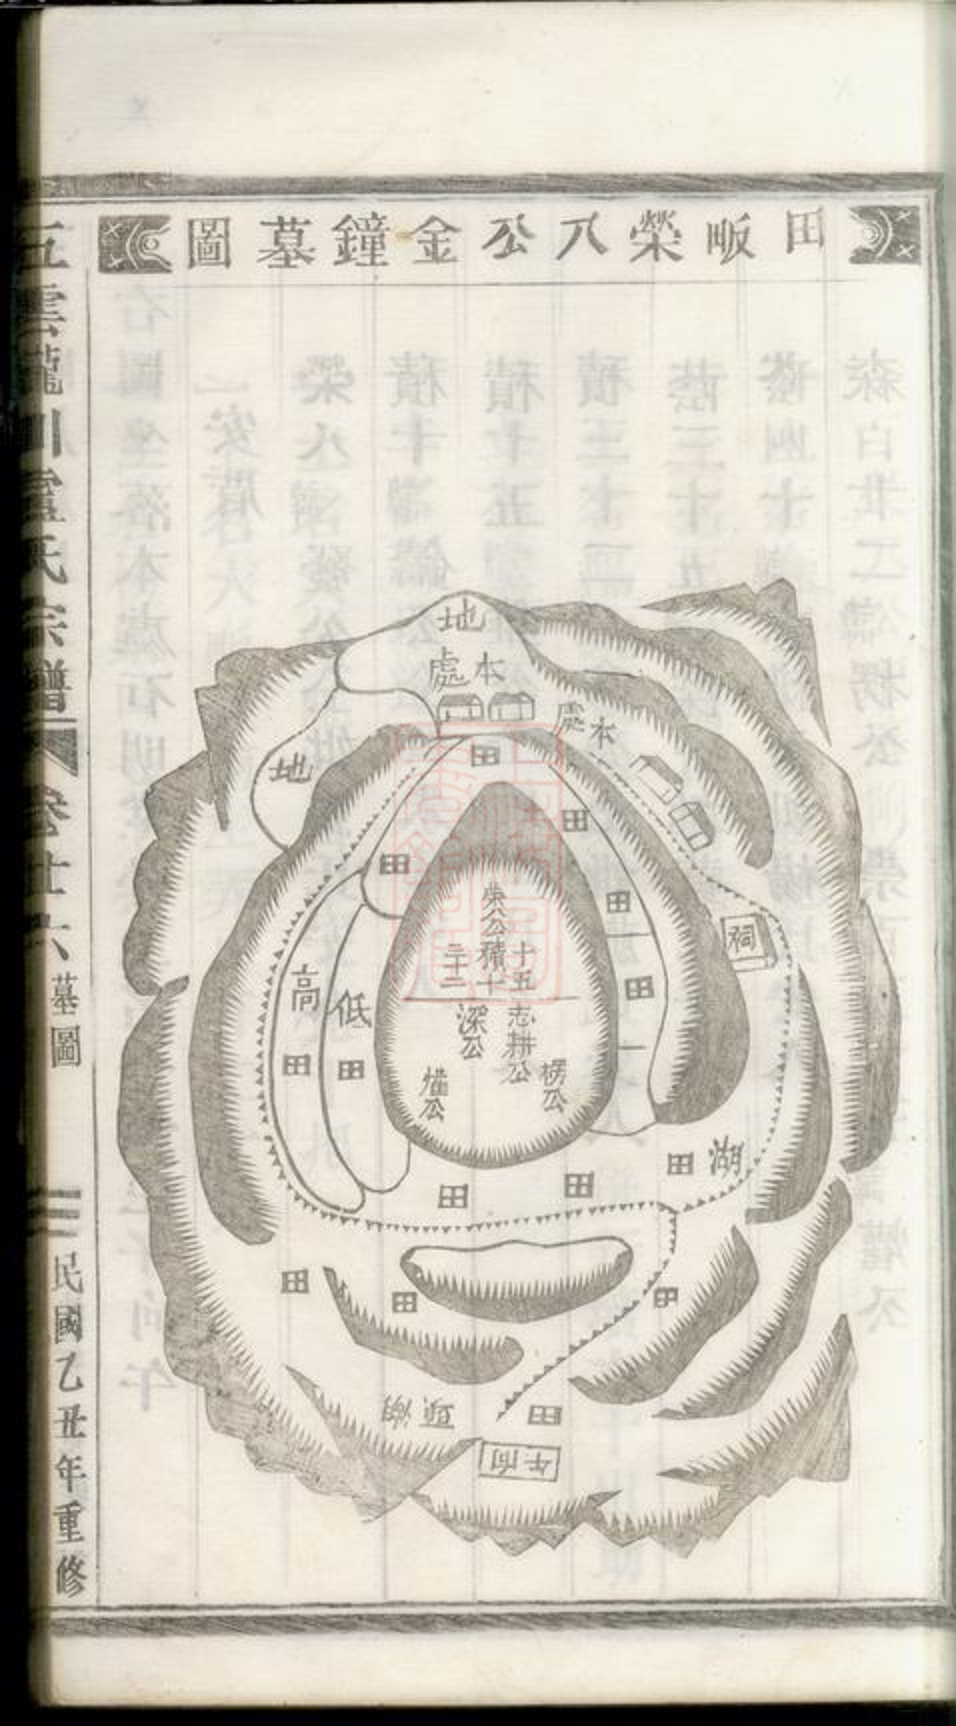 田畈榮八公金鐘墓圖
地
本處
本處
地
田
田
田
田
田
祠
榮公
積十五
十
三十二
高
低
田
田
志耕公
深公
楊公
湖
田
田
田
田
田
田
湖頭
田
午向
五雲龍川盧氏宗譜
卷廿六
墓圖
民國乙丑年重修